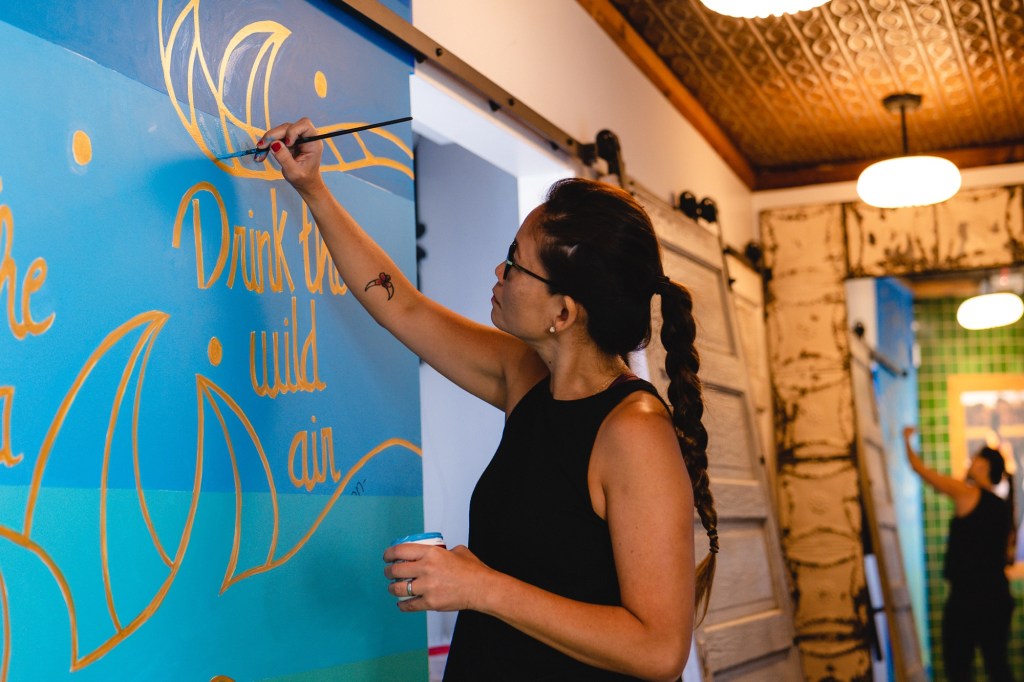 he
a
Drink the
wild
air